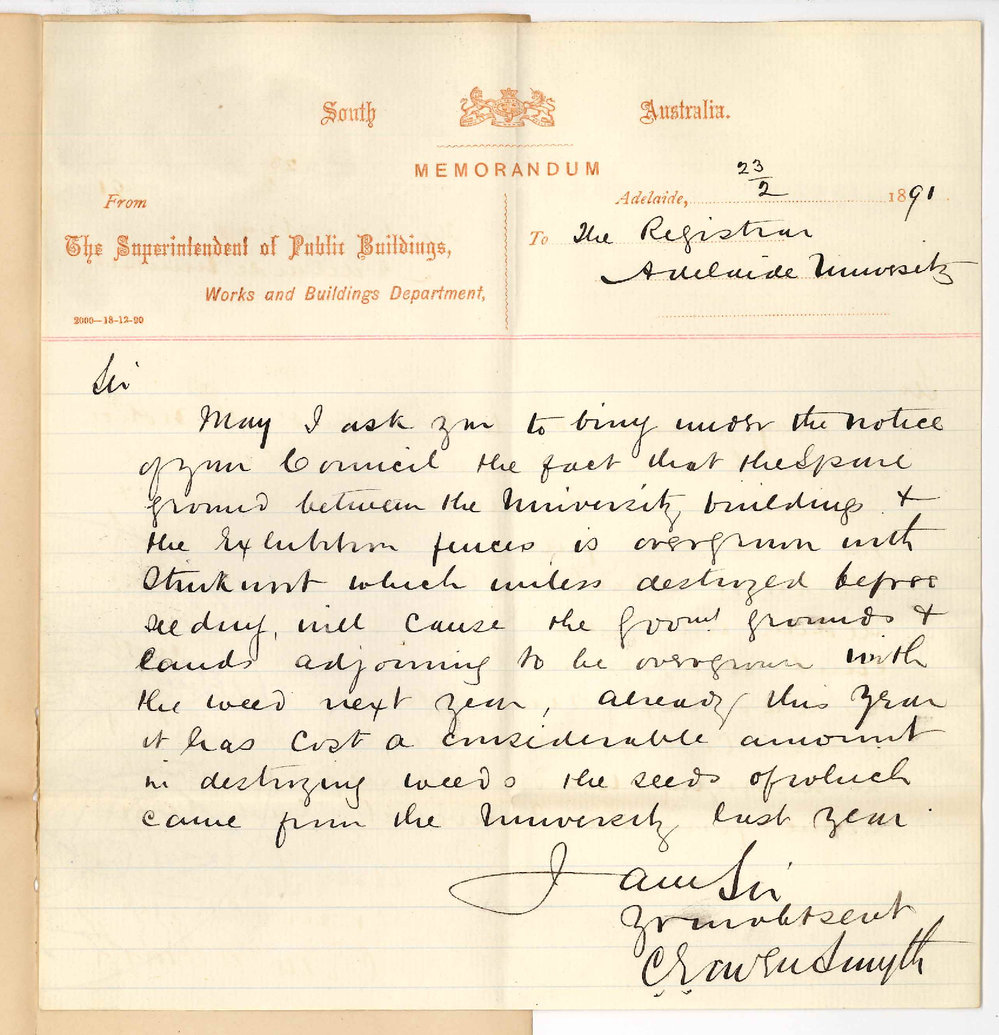 South Australia.
MEMORANDUM
Adelaide, 23/2 1891
From
The Superintendent of Public Buildings,
Works and Buildings Department,
2000—18-12-90
To The Registrar
Adelaide University
Sir
May I ask you to bring under the notice
of your Council the fact that the spare
ground between the University buildings &
the Exhibition fences is overgrown with
Stinkwort which unless destroyed before
seeding, will cause the Govmt grounds &
lands adjoining to be overgrown with
the weed next year, already this year
it has cost a considerable amount
in destroying weeds the seeds of which
came from the University last year.
I am Sir
Yr mo obt servt
C E Owen Smyth